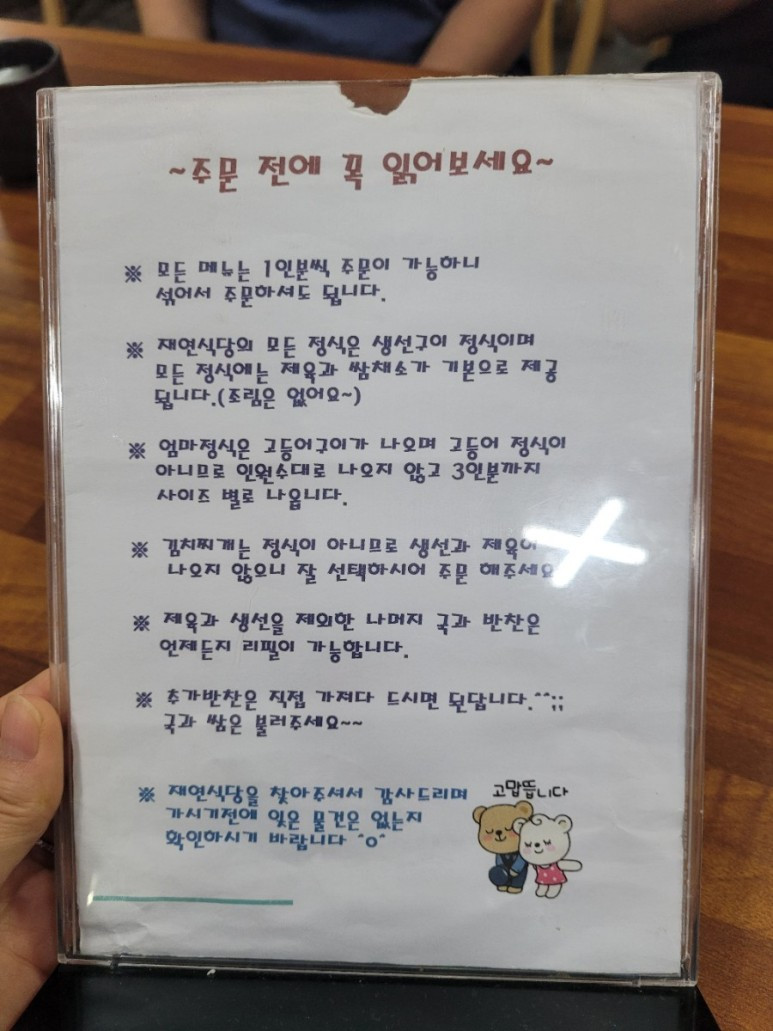 ~주문 전에 꼭 읽어보세요~
※ 모든 메뉴는 1인분씩 주문이 가능하니
섞어서 주문하셔도 됩니다.
※ 재연식당의 모든 정식은 생선구이 정식이며
모든 정식에는 제육과 쌈채소가 기본으로 제공
됩니다.(조림은 없어요~)
※ 엄마정식은 고등어구이가 나오며 고등어 정식이
아니므로 인원수대로 나오지 않고 3인분까지
사이즈 별로 나옵니다.
※ 김치찌개는 정식이 아니므로 생선과 제육이
나오지 않으니 잘 선택하시어 주문 해주세요
※ 제육과 생선을 제외한 나머지 국과 반찬은
언제든지 리필이 가능합니다.
※ 추가반찬은 직접 가져다 드시면 된답니다.^^;;
국과 쌈은 불러주세요~~
※ 재연식당을 찾아주셔서 감사드리며
가시기전에 잊은 물건은 없는지
확인하시기 바랍니다 ^o^
고맙뜹니다